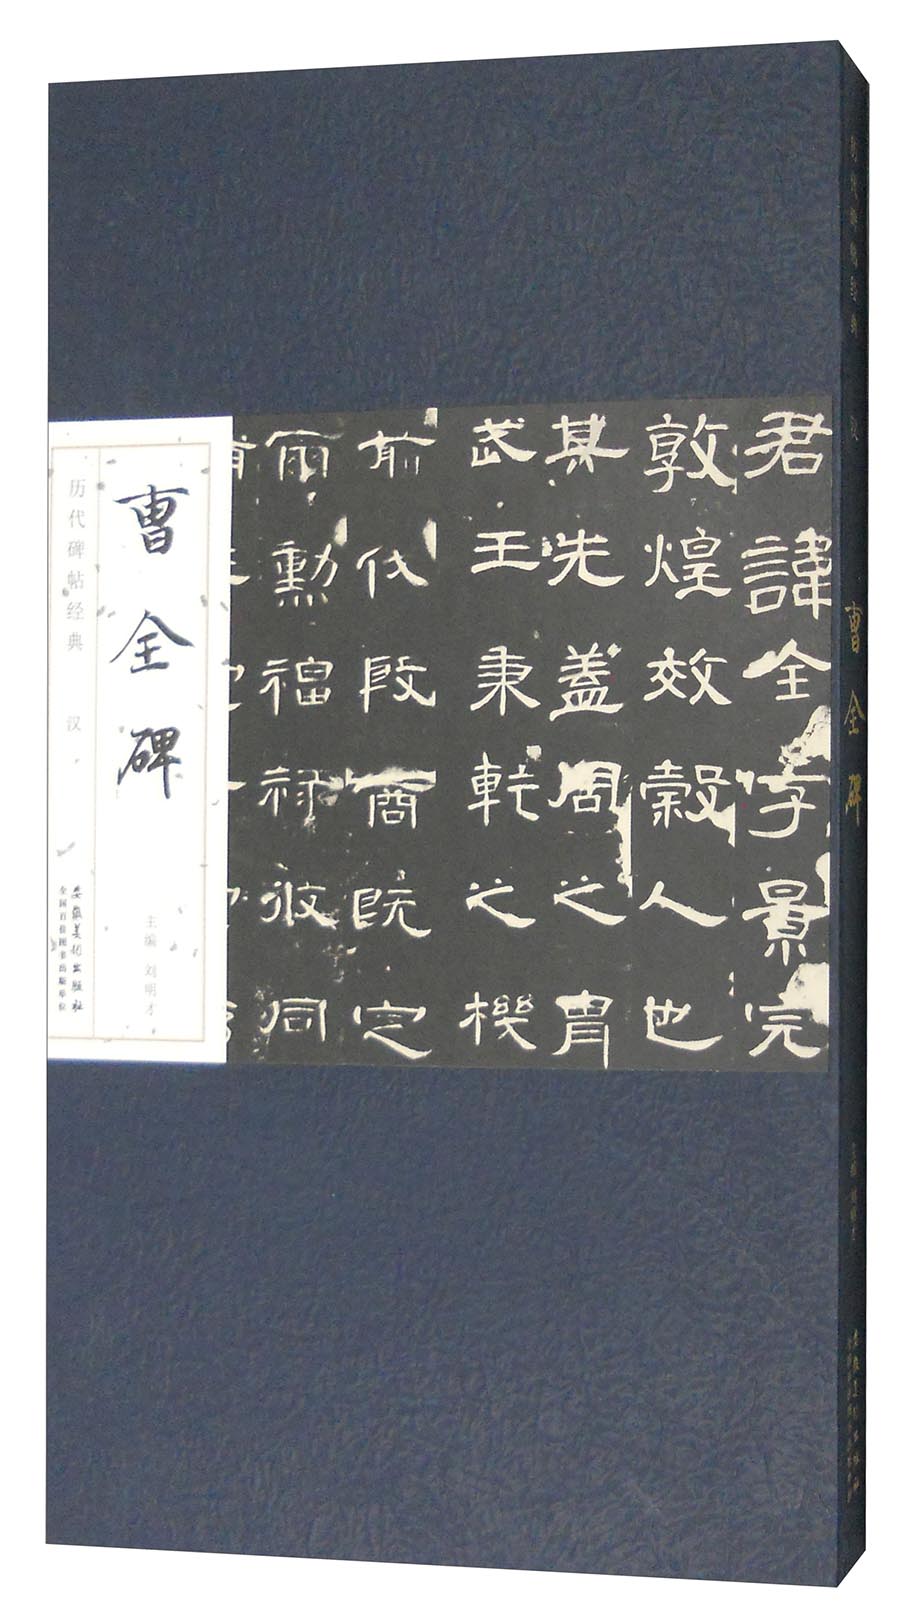 君諱全字景完
敦煌效穀人也
其先蓋周之胄
武王秉乾之機
前代殷商既定
爾勲福禄攸同
曹全碑
历代碑帖经典 汉
主编 刘明才
安徽美术出版社
全国百佳图书出版单位
曹全碑